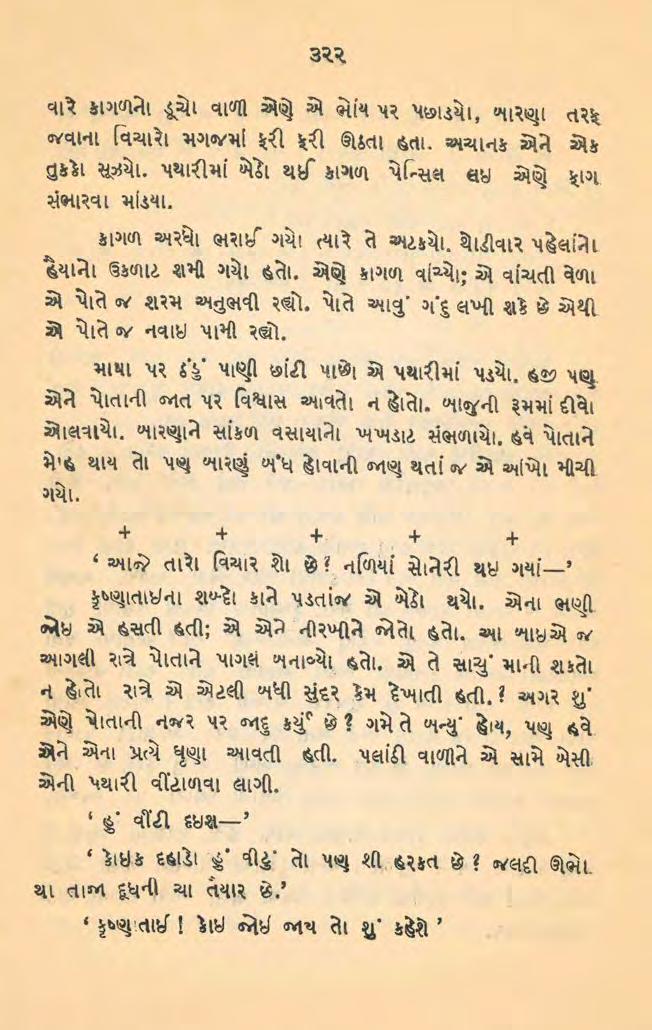 ૩૨૨
વારે કાગળનો ડૂચો વાળી એણે એ ભોંય પર પછાડયો, બારણા તરફ
જવાના વિચારો મગજમાં ફરી ફરી ઊઠતા હતા. અચાનક એને એક
તુકકો સૂઝયો. પથારીમાં બેઠો થઈ કાગળ પેન્સિલ લઇ એણે ફાગ
સંભારવા માંડયા.
કાગળ અરધો ભરાઈ ગયો ત્યારે તે અટકયો. થોડીવાર પહેલાંનો
હૈયાનો ઉકળાટ શમી ગયો હતો. એણે કાગળ વાંચ્યો; એ વાંચતી વેળા
એ પોતે જ શરમ અનુભવી રહ્યો. પોતે આવું ગંદુ લખી શકે છે એથી
એ પોતે જ નવાઇ પામી રહ્યો.
માથા પર ઠંડું પાણી છાંટી પાછો એ પથારીમાં પડયો. હજી પણ
એને પોતાની જાત પર વિશ્વાસ આવતો ન હોતો. બાજુની રૂમમાં દીવો
ઓલવાયો. બારણાને સાંકળ વસાયાનો ખખડાટ સંભળાયો. હવે પોતાને
મોહ થાય તો પણ બારણું બંધ હોવાની જાણ થતાં જ એ આંખો મીચી
ગયો.
+ + + + +
‘ આજે તારો વિચાર શો છે? નળિયાં સોનેરી થઇ ગયાં—’
કૃષ્ણાતાઇના શબ્દો કાને પડતાંજ એ બેઠો થયો. એના ભણી
જોઇ એ હસતી હતી; એ એને નીરખીને જોતો હતો. આ બાઇએ જ
આગલી રાત્રે પોતાને પાગલ બનાવ્યો હતો. એ તે સાચું માની શકતો
ન હોતો રાત્રે એ એટલી બધી સુંદર કેમ દેખાતી હતી.? અગર શું
એણે પોતાની નજર પર જાદુ કર્યું છે? ગમે તે બન્યું હોય, પણ હવે
એને એના પ્રત્યે ઘૃણા આવતી હતી. પલાંઠી વાળીને એ સામે બેસી
એની પથારી વીંટાળવા લાગી.
‘ હું વીંટી દઇશ—’
‘ કોઇક દહાડો હું વીટું તો પણ શી હરકત છે? જલદી ઊભો
થા તાજા દૂધની ચા તૈયાર છે.’
‘ કૃષ્ણાતાઈ ! કોઇ જોઈ જાય તો શું કહેશે ’